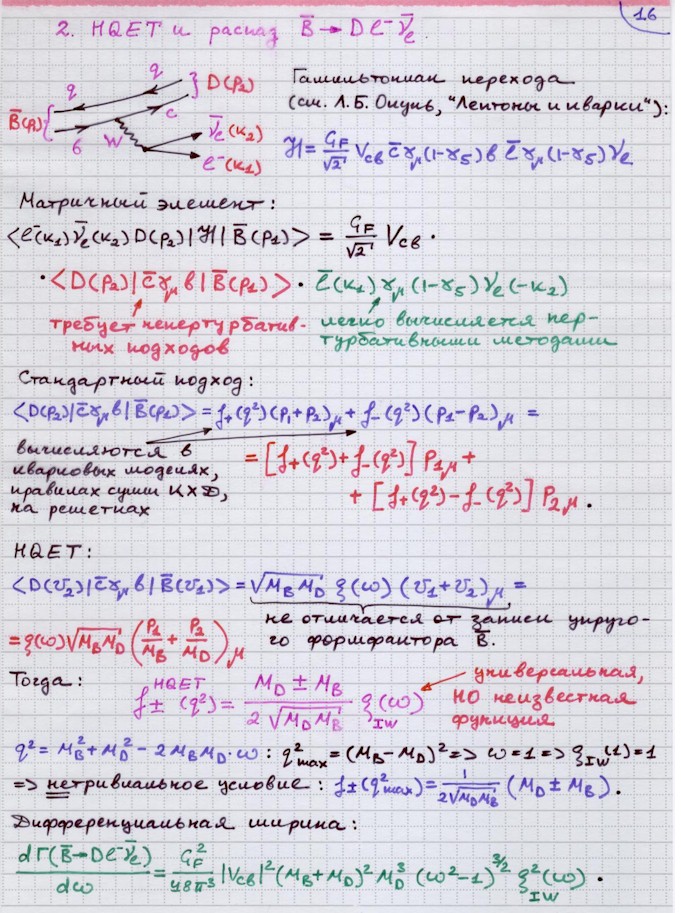 16
2. HQET и распад B̄ → D e⁻ ν̄ₑ.
q q } D(p₂)
B̄(p₁) { c
b W ν̄ₑ(k₂)
e⁻(k₁)
Гамильтониан перехода
(см. Л.Б. Окунь, "Лептоны и кварки"):
ℋ = G_F/√2 V_cb c̄ γ_μ (1-γ₅) b ē γ_μ (1-γ₅) νₑ
Матричный элемент:
<e⁻(k₁) ν̄ₑ(k₂) D(p₂)| ℋ | B̄(p₁)> = G_F/√2 V_cb ·
· <D(p₂)| c̄ γ_μ b | B̄(p₁)> · ē(k₁) γ_μ (1-γ₅) νₑ(-k₂)
требует непертурбатив-
ных подходов
легко вычисляется пер-
турбативными методами
Стандартный подход:
<D(p₂)| c̄ γ_μ b | B̄(p₁)> = f₊(q²)(p₁+p₂)_μ + f₋(q²)(p₁-p₂)_μ =
вычисляются в
кварковых моделях,
правилах сумм КХД,
на решетках
= [f₊(q²)+f₋(q²)] p₁μ +
+ [f₊(q²)-f₋(q²)] p₂μ .
HQET:
<D(v₂)| c̄ γ_μ b | B̄(v₁)> = √(M_B M_D) ξ(ω) (v₁+v₂)_μ =
= ξ(ω) √(M_B M_D) (p₁/M_B + p₂/M_D)_μ
не отличается от записи упруго-
го формфактора B̄.
Тогда:
f±^HQET (q²) = (M_D ± M_B)/(2√(M_D M_B)) ξ_IW(ω)
универсальная,
НО неизвестная
функция
q² = M_B² + M_D² - 2M_B M_D·ω : q²_max = (M_B-M_D)² => ω=1 => ξ_IW(1)=1
=> нетривиальное условие: f±(q²_max) = 1/(2√(M_D M_B)) (M_D ± M_B).
Дифференциальная ширина:
dΓ(B̄→De⁻ν̄ₑ)/dω = G_F²/48π³ |V_cb|² (M_B+M_D)² M_D³ (ω²-1)^(3/2) ξ²_IW(ω) .